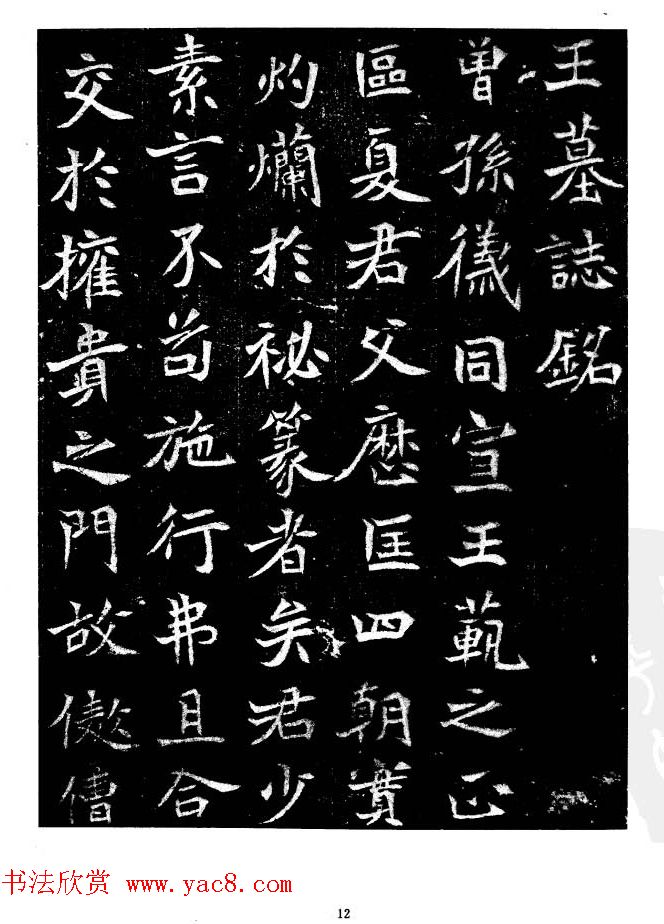 王墓誌銘
曾孫儀同宣王範之正
區夏君父歷匡四朝實
灼爛於祕篆者矣君少
素言不苟施行弗且合
交於擁貴之門故傲
书法欣赏 www.yac8.com
12